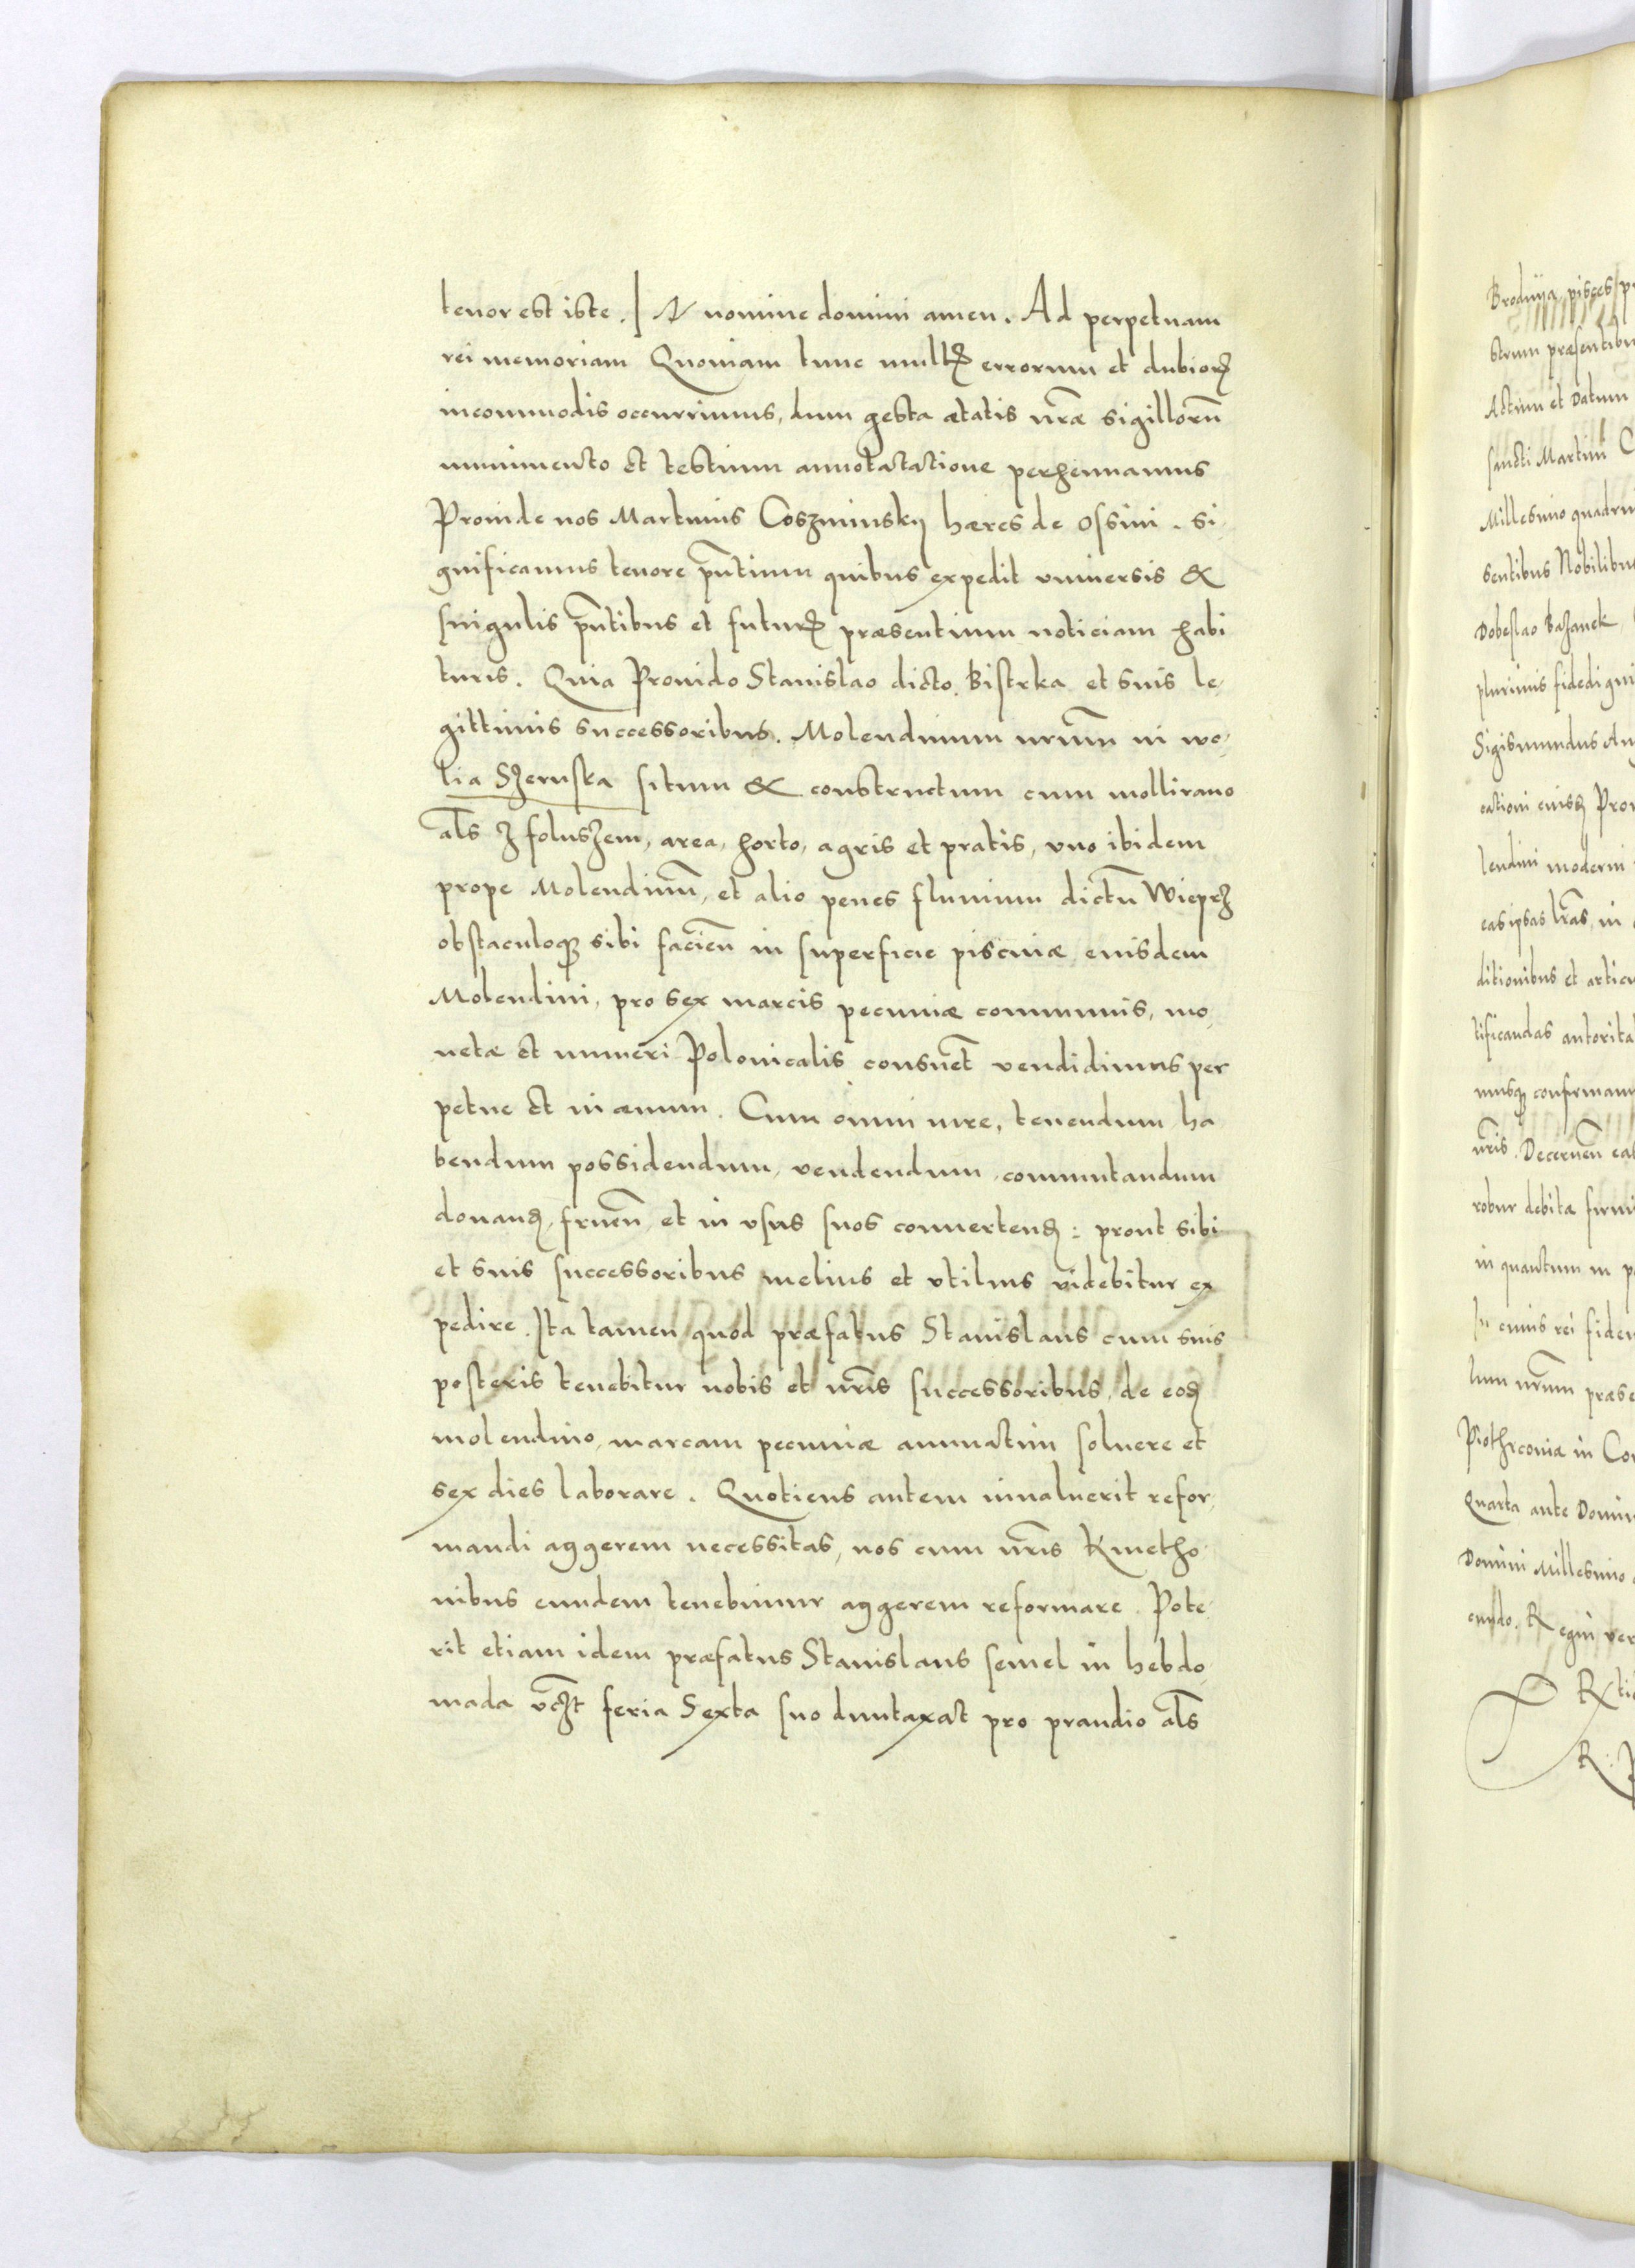 tenor est iste. IN nomine domini amen. Ad perpetuam
rei memoriam Quoniam tunc multꝝ errorum et dubiorꝝ
incommodis occurrimus, dum gesta ætatis nr̃æ sigillorũ
munimento et testium annotatatione perhennamus
Proinde nos Martinus Coszminskij hæres de Ossini. si-
gnificamus tenore p̃ntium quibus expedit vniuersis &
singulis p̃ntibus et futurꝭ præsentium noticiam habi
turis. Quia Prouido Stanislao dicto Bistrka et suis le-
gittimis successoribus. Molendinum nrũm in wo-
lia Szerniska situm & constructum cum mollirano
al̃s z foluszem, area, horto, agris et pratis, vno ibidem
prope Molendinũ, et alio penes fluuium dictũ Wieprz
obstaculoqꝫ sibi facieñ in superficie piscinæ eiusdem
Molendini, pro sex marcis pecuniæ communis, mo-
netæ et numeri Polonicalis consuet̃ vendidimus per
petue et in æuum. Cum omni iure, tenendum ha
bendum possidendum, vendendum, commutandum
donandꝫ, frueñ et in vsus suos conuertendꝫ: prout sibi
et suis successoribus melius et vtilius videbitur ex
pedire. Ita tamen quod præfatus Stanislaus cum suis
posteris tenebitur nobis et nr̃is successoribus, de eodꝫ
molendino, marcam pecuniæ annuatim soluere et
sex dies laborare. Quotiens autem inualuerit refor-
mandi aggerem necessitas, nos cum nr̃is Kmetho-
nibus eundem tenebimur aggerem reformare. Pote-
rit etiam idem præfatus Stanislaus semel in hebdo-
mada vcz̃t feria Sexta suo duntaxat pro prandio al̃s
Brodnija pisces
strum præsentibu
Actum et Datum
sancti Martini
Millesimo quadrin
sentibus Nobilibus
Dobeslao Bazanek
plurimis fidedigni
Sigismundus Au
cationi eiusdꝫ Prou
lendini moderni
eas ipsas lr̃as, in
ditionibus et articu
tificandas autorita
musqꝫ confirmam
nr̃is. Decerneñ eas
robur debitæ firmi
in quantum in
In cuius rei fidem
lum nr̃um præse
Piothrconiæ in Con
Quarta ante Domin
Domini Millesimo
cundo. Regni ver